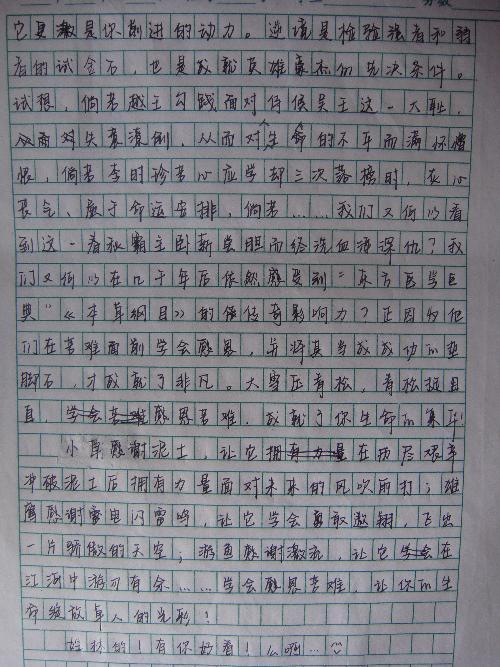 分数
它更激是你前进的动力。逆境是检验强者和弱
者的试金石，也是成就英雄豪杰的先决条件。
试想，倘若越王勾践面对侍候吴王这一大耻，
从而对失衷，从而对生命的不平而满怀憎
恨，倘若李时珍苦心应学却三次落榜时，灰心
丧气、屈于命运安排，倘若……我们又何以看
到这一春秋霸主卧薪尝胆而终洗血海深仇？我
们又何以在几千年后依然感受到“东方医学巨
典”《本草纲目》的传奇影响力？正因为他
们在苦难面前学会感恩，并将其当成成功的垫
脚石，才成就了非凡。大雪压青松，青松挺且
直，学会苦难感恩苦难，成就了你生命的集！
小草感谢泥土，让它拥有力量在历尽艰辛
冲破泥土后拥有力量面对未来的风吹雨打；雄
鹰感谢雷电闪雷鸣，让它学会勇敢遨翔，飞出
一片骄傲的天空；游鱼感谢激流，让它学会在
江海中游刃有余……学会感恩苦难，让你的生
命绽放卓人的光彩！
姓林的！有你好看！么啊…